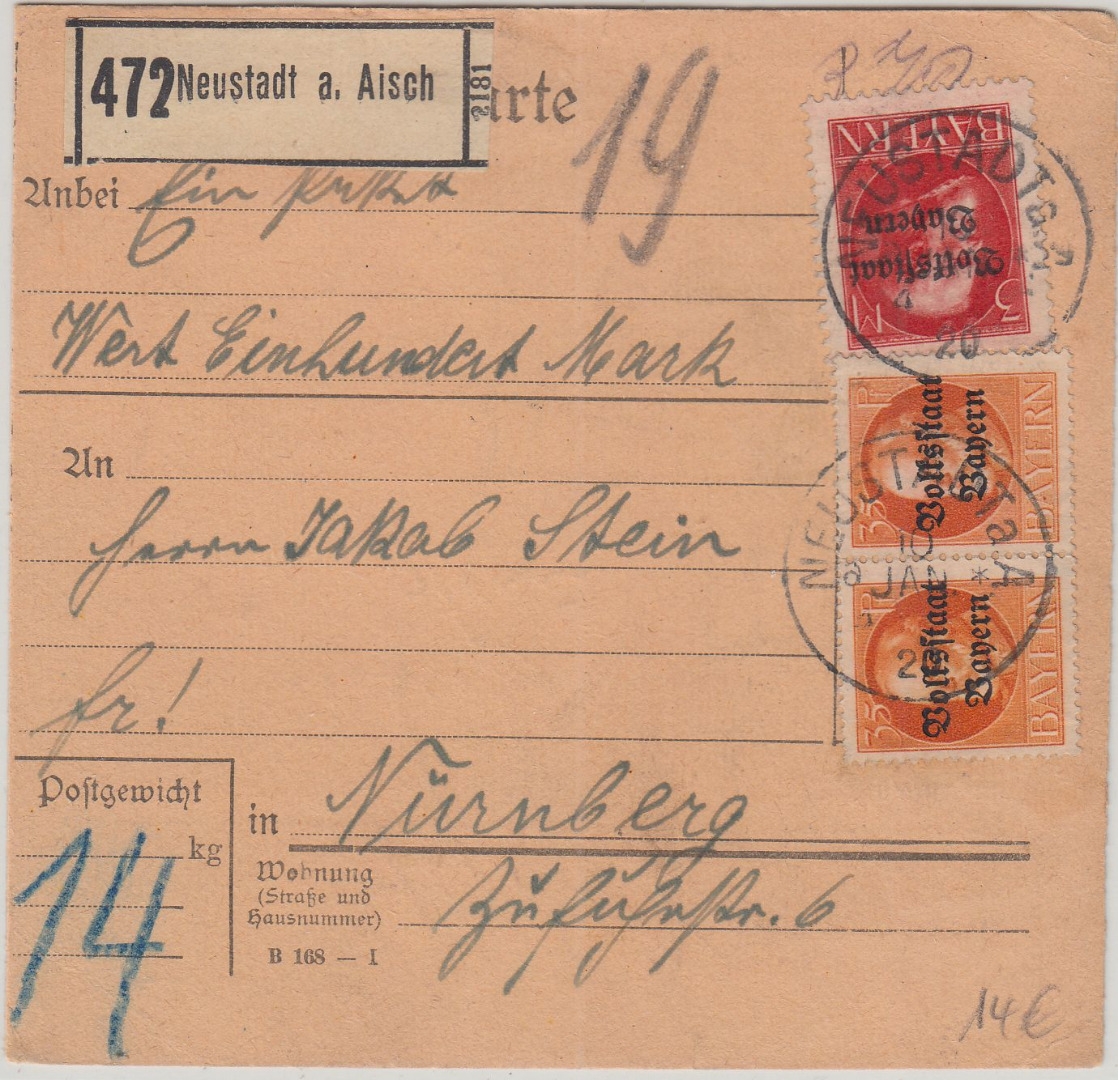 472 Neustadt a. Aisch 2181
arte
19
Anbei Ein Paket
Wert Einhundert Mark
An
Herrn Jakob Stein
fr!
Postgewicht
kg
14
in Nürnberg
Wohnung
(Straße und
Hausnummer)
Zufuhrstr. 6
B 168 — I
14€
BAYERN
Volksstaat
Bayern
3 M
NEUSTADT a. A.
20
35 Pf
Volksstaat
Bayern
BAYERN
NEUSTADT a. A
10
JAN *
20
35 Pf
Volksstaat
Bayern
BAYERN